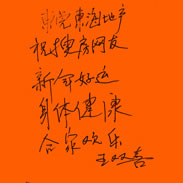 东莞东海地产
祝搜房网友
新年好运
身体健康
合家欢乐
王双喜